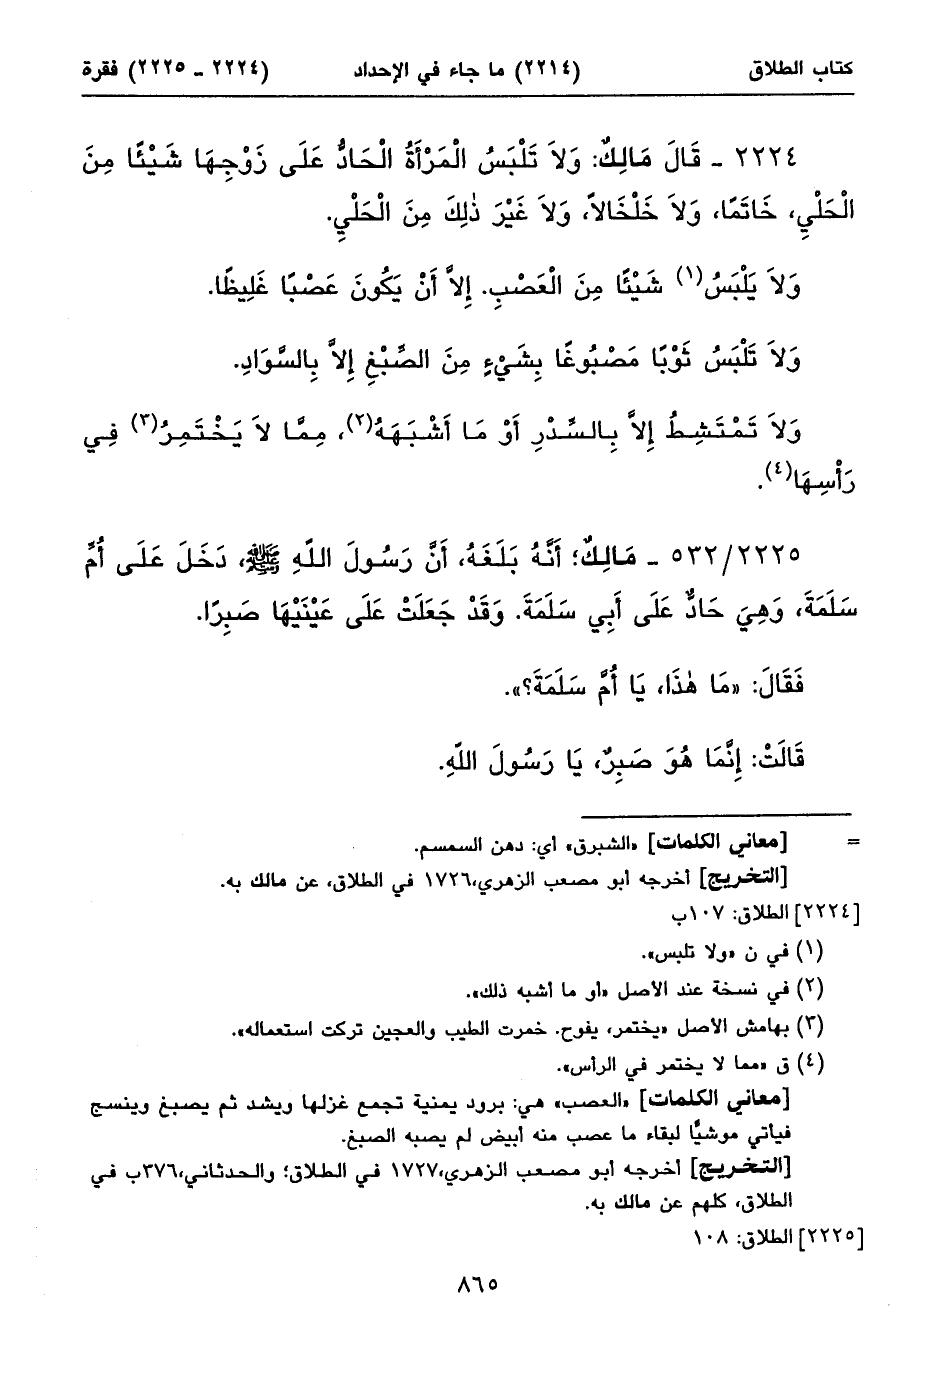 كتاب الطلاق (٢٢١٤) ما جاء في الإحداد (٢٢٢٤ - ٢٢٢٥) فقرة
٢٢٢٤ - قَالَ مَالِكٌ: وَلاَ تَلْبَسُ الْمَرْأَةُ الْحَادُّ عَلَى زَوْجِهَا شَيْئًا مِنَ
الْحَلْيِ، خَاتَمًا، وَلاَ خَلْخَالاً، وَلاَ غَيْرَ ذٰلِكَ مِنَ الْحَلْيِ.
وَلاَ يَلْبَسُ(١) شَيْئًا مِنَ الْعَصْبِ. إِلاَّ أَنْ يَكُونَ عَصْبًا غَلِيظًا.
وَلاَ تَلْبَسُ ثَوْبًا مَصْبُوغًا بِشَيْءٍ مِنَ الصِّبْغِ إِلاَّ بِالسَّوَادِ.
وَلاَ تَمْتَشِطُ إِلاَّ بِالسِّدْرِ أَوْ مَا أَشْبَهَهُ(٢)، مِمَّا لاَ يَخْتَمِرُ(٣) فِي
رَأْسِهَا(٤).
٥٣٢/٢٢٢٥ - مَالِكٌ؛ أَنَّهُ بَلَغَهُ، أَنَّ رَسُولَ اللَّهِ ﷺ، دَخَلَ عَلَى أُمِّ
سَلَمَةَ، وَهِيَ حَادٌّ عَلَى أَبِي سَلَمَةَ. وَقَدْ جَعَلَتْ عَلَى عَيْنَيْهَا صَبِرًا.
فَقَالَ: «مَا هٰذَا، يَا أُمَّ سَلَمَةَ؟».
قَالَتْ: إِنَّمَا هُوَ صَبِرٌ، يَا رَسُولَ اللَّهِ.
= [معاني الكلمات] «الشبرق» أي: دهن السمسم.
[التخريج] أخرجه أبو مصعب الزهري، ١٧٢٦ في الطلاق، عن مالك به.
[٢٢٢٤] الطلاق: ١٠٧ب
(١) في ن «ولا تلبس».
(٢) في نسخة عند الأصل «أو ما أشبه ذلك».
(٣) بهامش الأصل «يختمر، يفوح. خمرت الطيب والعجين تركت استعماله».
(٤) ق «مما لا يختمر في الرأس».
[معاني الكلمات] «العصب» هي: برود يمنية تجمع غزلها ويشد ثم يصبغ وينسج
فيأتي موشيًّا لبقاء ما عصب منه أبيض لم يصبه الصبغ.
[التخريج] أخرجه أبو مصعب الزهري، ١٧٢٧ في الطلاق؛ والحدثاني، ٣٧٦ب في
الطلاق، كلهم عن مالك به.
[٢٢٢٥] الطلاق: ١٠٨
٨٦٥